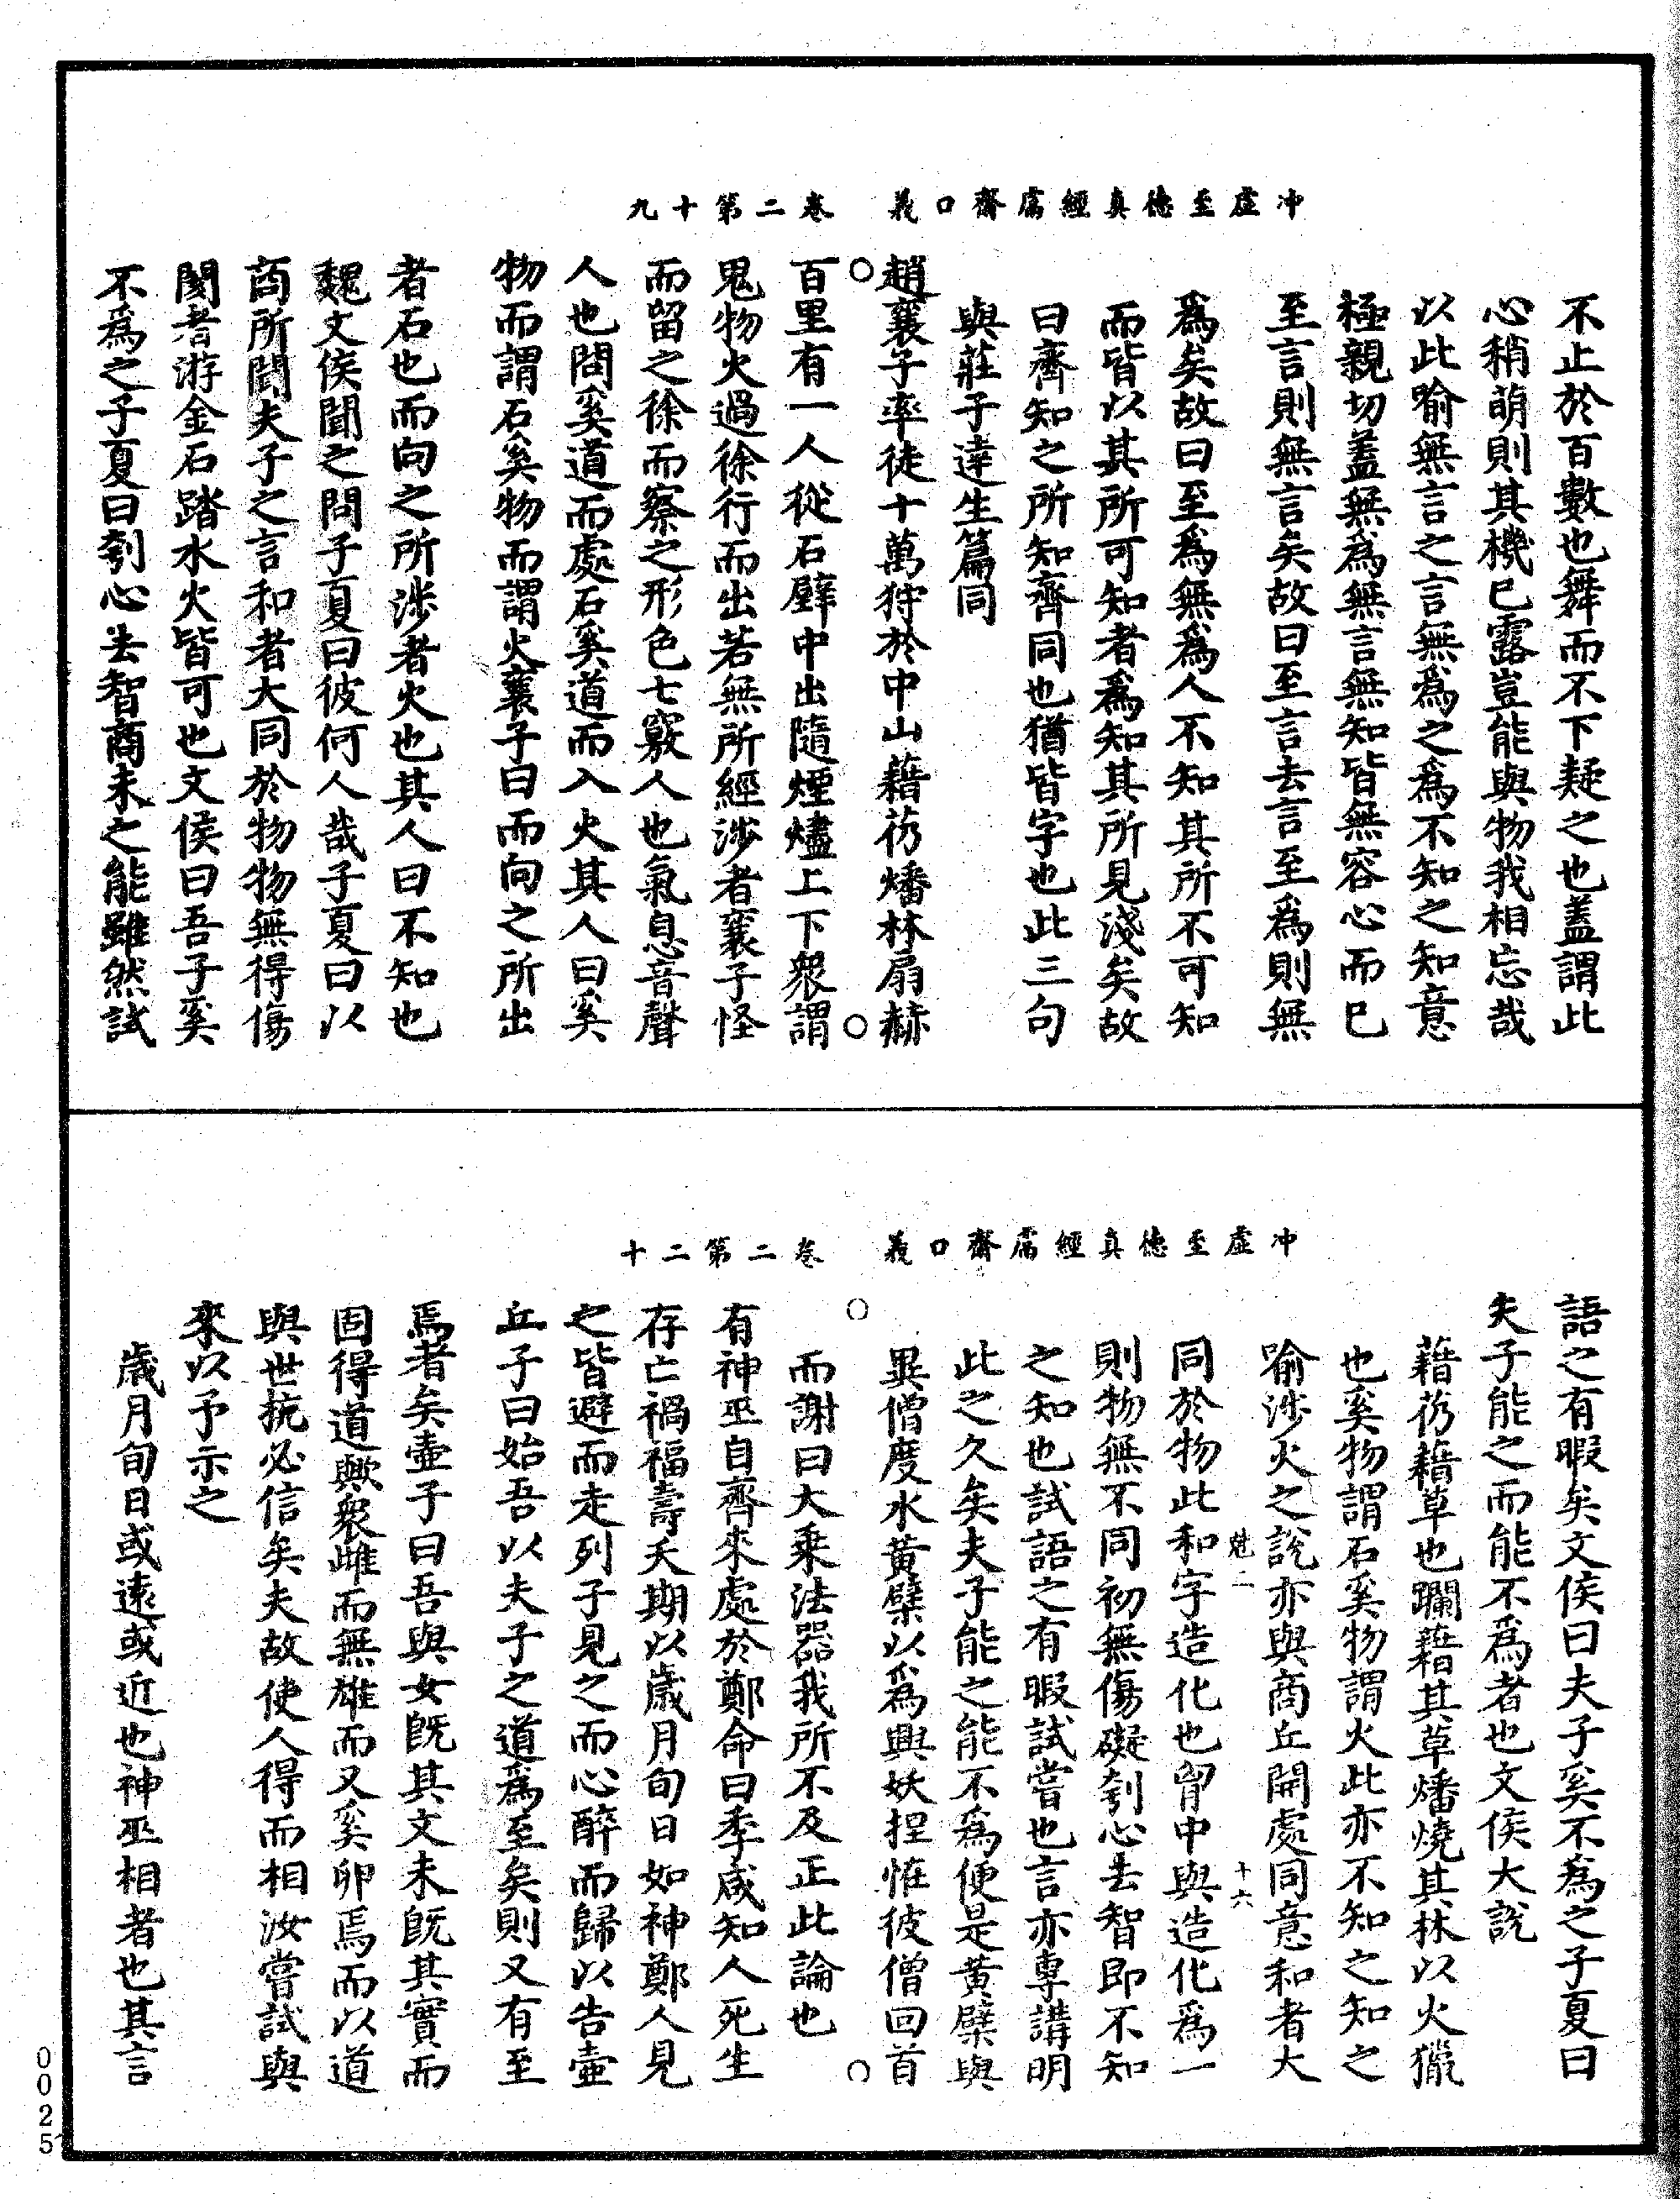 冲虛至德真經鬳齋口義　卷二第十九
不止於百數也舞而不下疑之也蓋謂此
心稍萌則其機已露豈能與物我相忘哉
以此喻無言之言無爲之爲不知之知意
極親切蓋無爲無言無知皆無容心而已
至言則無言矣故曰至言去言至爲則無
爲矣故曰至爲無爲人不知其所不可知
而皆以其所可知者爲知其所見淺矣故
曰齊知之所知齊同也猶皆字也此三句
與莊子達生篇同
趙襄子率徒十萬狩於中山藉芿燔林扇赫
百里有一人從石壁中出隨煙燼上下衆謂
鬼物火過徐行而出若無所經涉者襄子怪
而留之徐而察之形色七竅人也氣息音聲
人也問奚道而處石奚道而入火其人曰奚
物而謂石奚物而謂火襄子曰而向之所出
者石也而向之所涉者火也其人曰不知也
魏文侯聞之問子夏曰彼何人哉子夏曰以
商所聞夫子之言和者大同於物物無得傷
閡者游金石蹈水火皆可也文侯曰吾子奚
不爲之子夏曰刳心去智商未之能雖然試
冲虛至德真經鬳齋口義　卷二第二十
語之有暇矣文侯曰夫子奚不爲之子夏曰
夫子能之而能不爲者也文侯大說
藉芿藉草也躝藉其草燔燒其林以火獵
也奚物謂石奚物謂火此亦不知之知之
喻涉火之說亦與商丘開處同意和者大
二　十六
同於物此和字造化也胷中與造化爲一
則物無不同初無傷礙刳心去智即不知
之知也試語之有暇試嘗也言亦專講明
此之久矣夫子能之能不爲便是黃檗與
異僧度水黃檗以爲興妖捏恠彼僧回首
而謝曰大乘法器我所不及正此論也
有神巫自齊來處於鄭命曰季咸知人死生
存亡禍福壽夭期以歲月旬日如神鄭人見
之皆避而走列子見之而心醉而歸以告壺
丘子曰始吾以夫子之道爲至矣則又有至
焉者矣壺子曰吾與女旣其文未旣其實而
固得道歟衆雌而無雄而又奚卵焉而以道
與世抗必信矣夫故使人得而相汝嘗試與
來以予示之
歲月旬日或遠或近也神巫相者也其言
0025